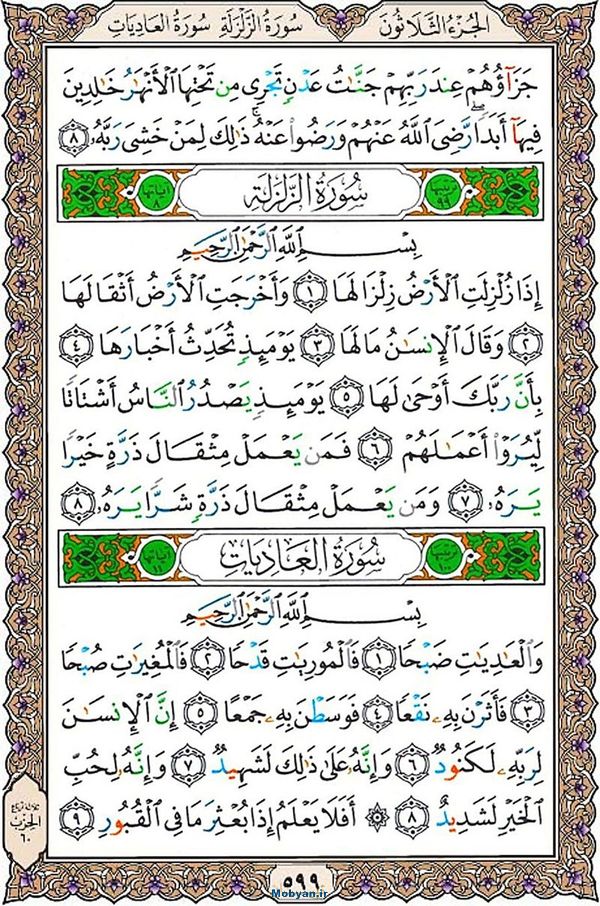 الجُزءُ الثَّلَاثُونَ سُورَةُ الزَّلْزَلَةِ سُورَةُ العَادِيَاتِ
جَزَآؤُهُمْ عِندَ رَبِّهِمْ جَنَّٰتُ عَدْنٍ تَجْرِى مِن تَحْتِهَا ٱلْأَنْهَٰرُ خَٰلِدِينَ
فِيهَآ أَبَدًا ۖ رَّضِىَ ٱللَّهُ عَنْهُمْ وَرَضُوا۟ عَنْهُ ۚ ذَٰلِكَ لِمَنْ خَشِىَ رَبَّهُۥ ٨
ترتيبها ٩٩ سُورَةُ الزَّلْزَلَة آياتها ٨
بِسْمِ ٱللَّهِ ٱلرَّحْمَٰنِ ٱلرَّحِيمِ
إِذَا زُلْزِلَتِ ٱلْأَرْضُ زِلْزَالَهَا ١ وَأَخْرَجَتِ ٱلْأَرْضُ أَثْقَالَهَا
٢ وَقَالَ ٱلْإِنسَٰنُ مَا لَهَا ٣ يَوْمَئِذٍ تُحَدِّثُ أَخْبَارَهَا ٤
بِأَنَّ رَبَّكَ أَوْحَىٰ لَهَا ٥ يَوْمَئِذٍ يَصْدُرُ ٱلنَّاسُ أَشْتَاتًا
لِّيُرَوْا۟ أَعْمَٰلَهُمْ ٦ فَمَن يَعْمَلْ مِثْقَالَ ذَرَّةٍ خَيْرًا
يَرَهُۥ ٧ وَمَن يَعْمَلْ مِثْقَالَ ذَرَّةٍ شَرًّا يَرَهُۥ ٨
ترتيبها ١٠٠ سُورَةُ العَادِيَاتِ آياتها ١١
بِسْمِ ٱللَّهِ ٱلرَّحْمَٰنِ ٱلرَّحِيمِ
وَٱلْعَٰدِيَٰتِ ضَبْحًا ١ فَٱلْمُورِيَٰتِ قَدْحًا ٢ فَٱلْمُغِيرَٰتِ صُبْحًا
٣ فَأَثَرْنَ بِهِۦ نَقْعًا ٤ فَوَسَطْنَ بِهِۦ جَمْعًا ٥ إِنَّ ٱلْإِنسَٰنَ
لِرَبِّهِۦ لَكَنُودٌ ٦ وَإِنَّهُۥ عَلَىٰ ذَٰلِكَ لَشَهِيدٌ ٧ وَإِنَّهُۥ لِحُبِّ
ٱلْخَيْرِ لَشَدِيدٌ ٨ ۞ أَفَلَا يَعْلَمُ إِذَا بُعْثِرَ مَا فِى ٱلْقُبُورِ ٩
الحِزْب
٦٠
٥٩٩
Mobyan.ir